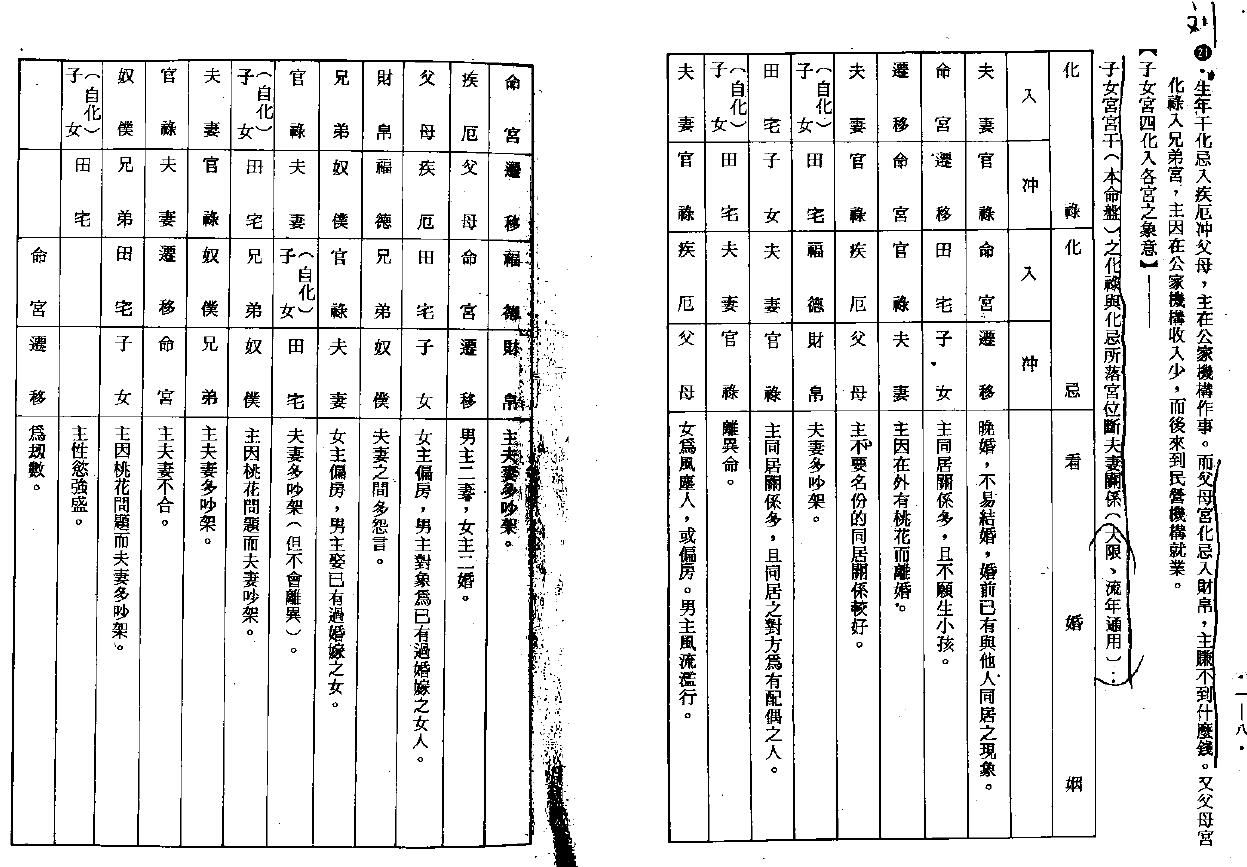 21
㉑生年干化忌入疾厄冲父母，主在公家機構作事。而父母宮化忌入財帛，主賺不到什麼錢。又父母宮
化祿入兄弟宮，主因在公家機構收入少，而後來到民營機構就業。
【子女宮四化入各宮之象意】——
子女宮宮干（本命盤）之化祿與化忌所落宮位斷夫妻關係（大限、流年通用）：
化祿 化忌 看婚姻
入 冲 入 冲
夫妻 官祿 命宮 遷移 晚婚，不易結婚，婚前已有與他人同居之現象。
命宮 遷移 田宅 子女 主同居關係多，且不願生小孩。
遷移 命宮 官祿 夫妻 主因在外有桃花而離婚。
夫妻 官祿 疾厄 父母 主不要名份的同居關係較好。
子女（自化） 田宅 福德 財帛 夫妻多吵架。
田宅 子女 夫妻 官祿 主同居關係多，且同居之對方為有配偶之人。
子女（自化） 田宅 夫妻 官祿 離異命。
夫妻 官祿 疾厄 父母 女為風塵人，或偏房。男主風流濫行。
·一一八·
命宮 遷移 福德 財帛 主夫妻多吵架。
疾厄 父母 命宮 遷移 男主二妻，女主二婚。
父母 疾厄 田宅 子女 女主偏房，男主對象為已有過婚嫁之女人。
財帛 福德 兄弟 奴僕 夫妻之間多怨言。
兄弟 奴僕 官祿 夫妻 女主偏房，男主娶已有過婚嫁之女。
官祿 夫妻 子女（自化） 田宅 夫妻多吵架（但不會離異）。
子女（自化） 田宅 兄弟 奴僕 主因桃花問題而夫妻吵架。
夫妻 官祿 奴僕 兄弟 主夫妻多吵架。
官祿 夫妻 遷移 命宮 主夫妻不合。
奴僕 兄弟 田宅 子女 主因桃花問題而夫妻多吵架。
子女（自化） 田宅 主性慾強盛。
命宮 遷移 為劫數。